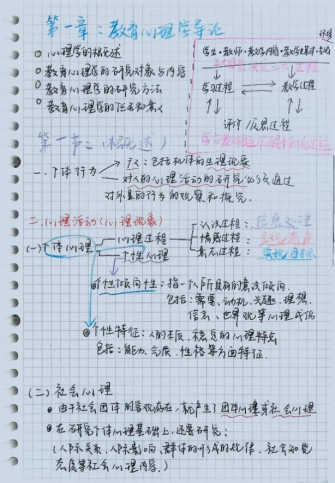 第一章：教育心理学导论
心理学的概述
教育心理学的研究对象与内容
教育心理学的研究方法
教育心理学的历史和意义
学生·教师·教学内容·教学媒体·
学习过程 教学过程
评价/反思过程
第一节：(概述)
一、个体行为
广义：包括机体的生理现象
对人的心理活动的研究必须通过
对外显的行为的观察和探究。
二、心理活动(心理现象)
(一)个体心理
心理过程
认识过程：信息处理
情感过程：
意志过程：
个性心理
个性倾向性：指一个人所具有的意识倾向，
包括：需要、动机、兴趣、理想、
信念、世界观等心理成份
个性特征：人的本质、稳定的心理特点
包括：能力、气质、性格等方面特征。
(二)社会心理
由于社会团体的客观存在，就产生了团体心理或社会心理
在研究个体心理基础上，还要研究：
(人际关系、人际影响、群体的形成的、社会
态度等社会心理内容。)